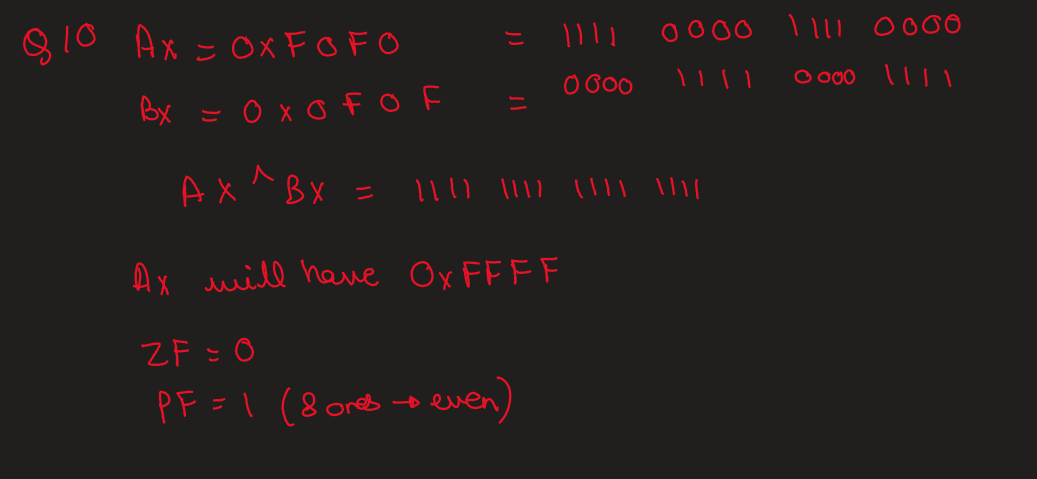 Q10 Ax = 0xF0F0 = 1111 0000 1111 0000
Bx = 0x0F0F = 0000 1111 0000 1111
AX ^ BX = 1111 1111 1111 1111
Ax will have 0xFFFF
ZF = 0
PF = 1 (8 ones → even)